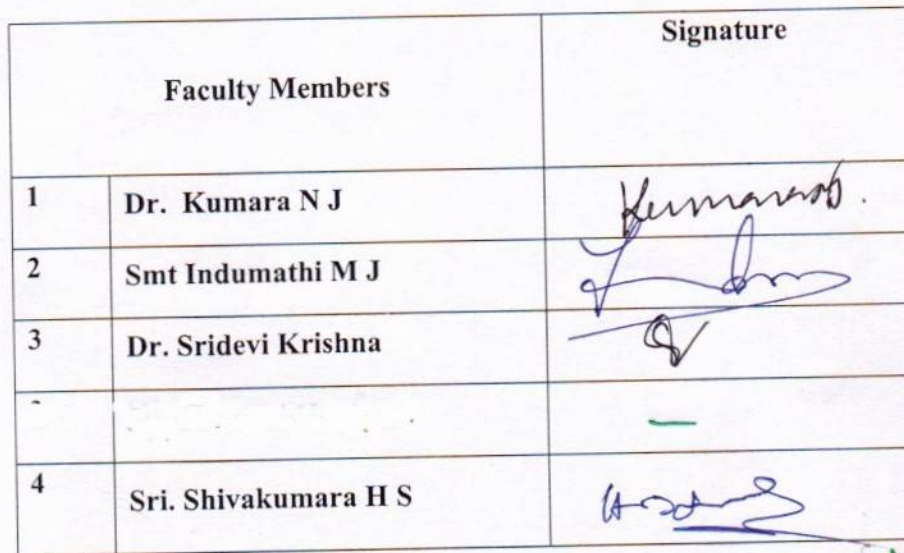 Faculty Members Signature
1 Dr. Kumara N J Kumara
2 Smt Indumathi M J
3 Dr. Sridevi Krishna
- —
4 Sri. Shivakumara H S